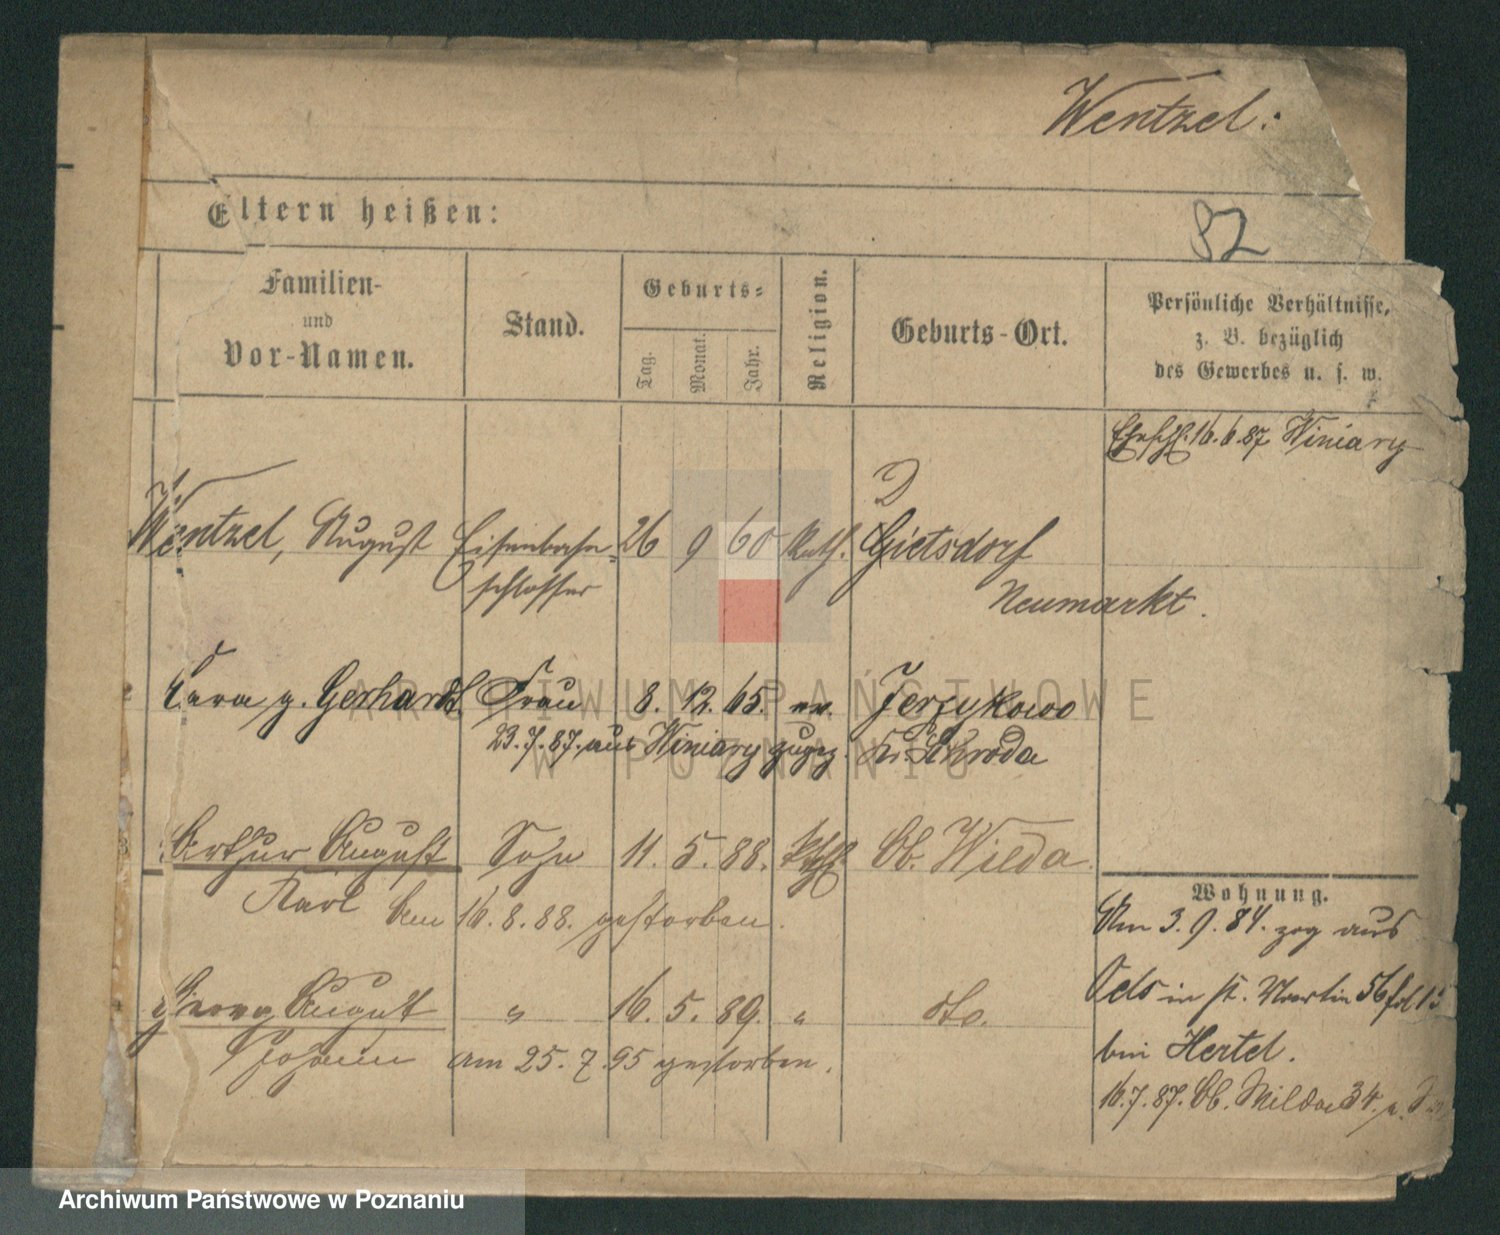 Wentzel:
Eltern heißen:
82
Familien-
und
Vor-Namen.
Stand.
Geburts-
Tag.
Monat.
Jahr.
Religion.
Geburts-Ort.
Persönliche Verhältnisse,
z. B. bezüglich
des Gewerbes u. s. w.
Ehschl. 16.6.87 Winiary
D
Wentzel, August Eisenbahn- 26 9 60 Kath. Gietsdorf
schlosser Neumarkt.
g. Gerhardt Frau 8. 12. 65. ev. Jerzykowo
23.7.87. aus Winiary zugez. Kr. Schroda
Arthur August Sohn 11. 5. 88. kth. Ob. Wilda.
Karl am 16.8.88. gestorben.
Georg August " 16. 5. 89. " dto.
Johann am 25.7.95 gestorben.
Wohnung.
Am 3.9.84. zog aus
Oels in St. Martin 56
bei Hertel.
16.7.87. Ob. Wilda 34.
ARCHIWUM PAŃSTWOWE
W POZNANIU
Archiwum Państwowe w Poznaniu